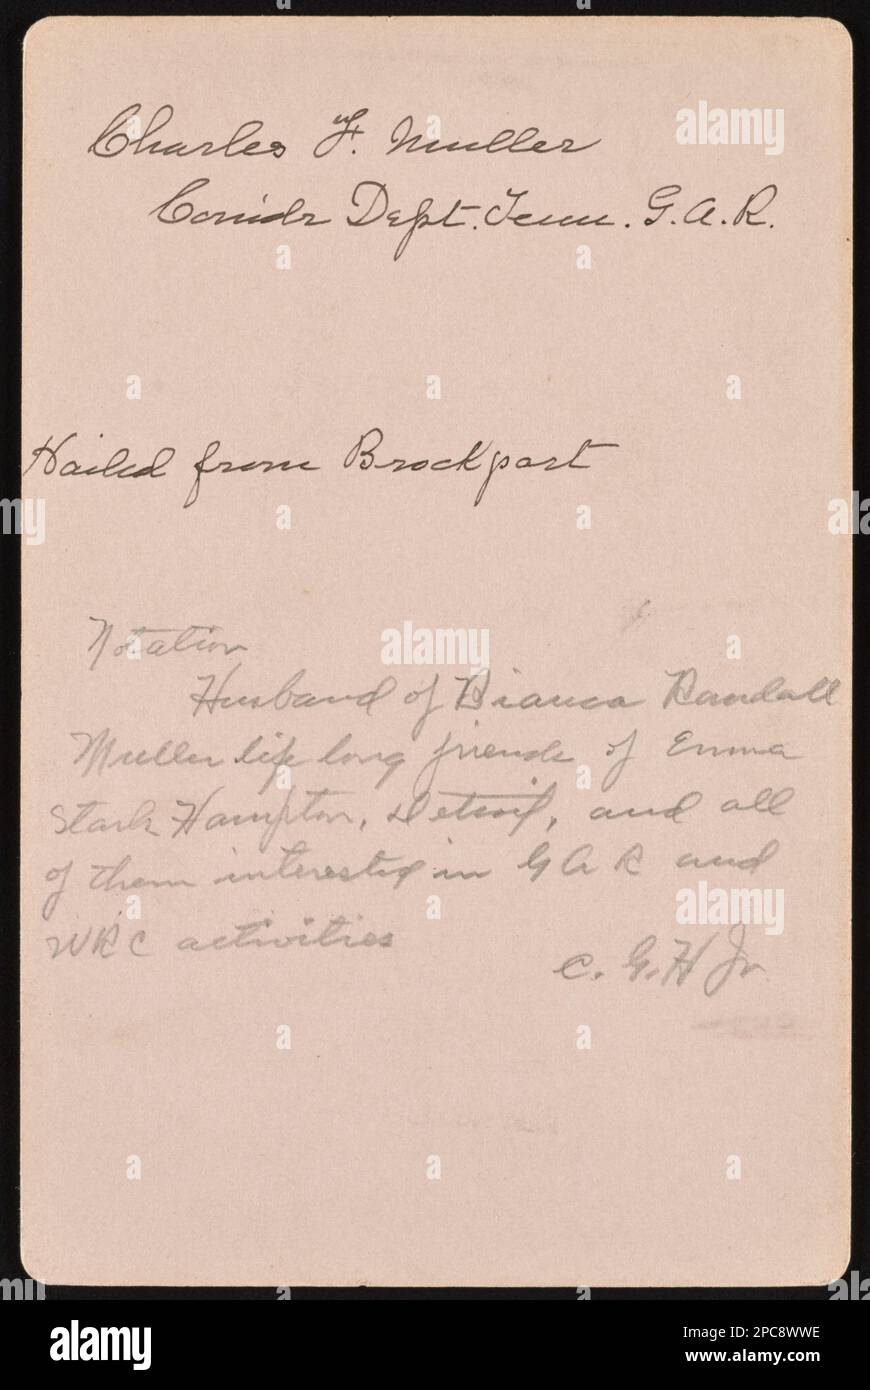 Charles F. Muller
Comdr Dept. Tenn. G. A. R.
Hailed from Brockport
Notation
Husband of Bianca Randall
Muller life long friends of Emma
Stark Hampton, Detroit, and all
of them interested in G A R and
WRC activities
C. G. H Jr.
alamy
alamy
Image ID: 2PC8WWE
www.alamy.com